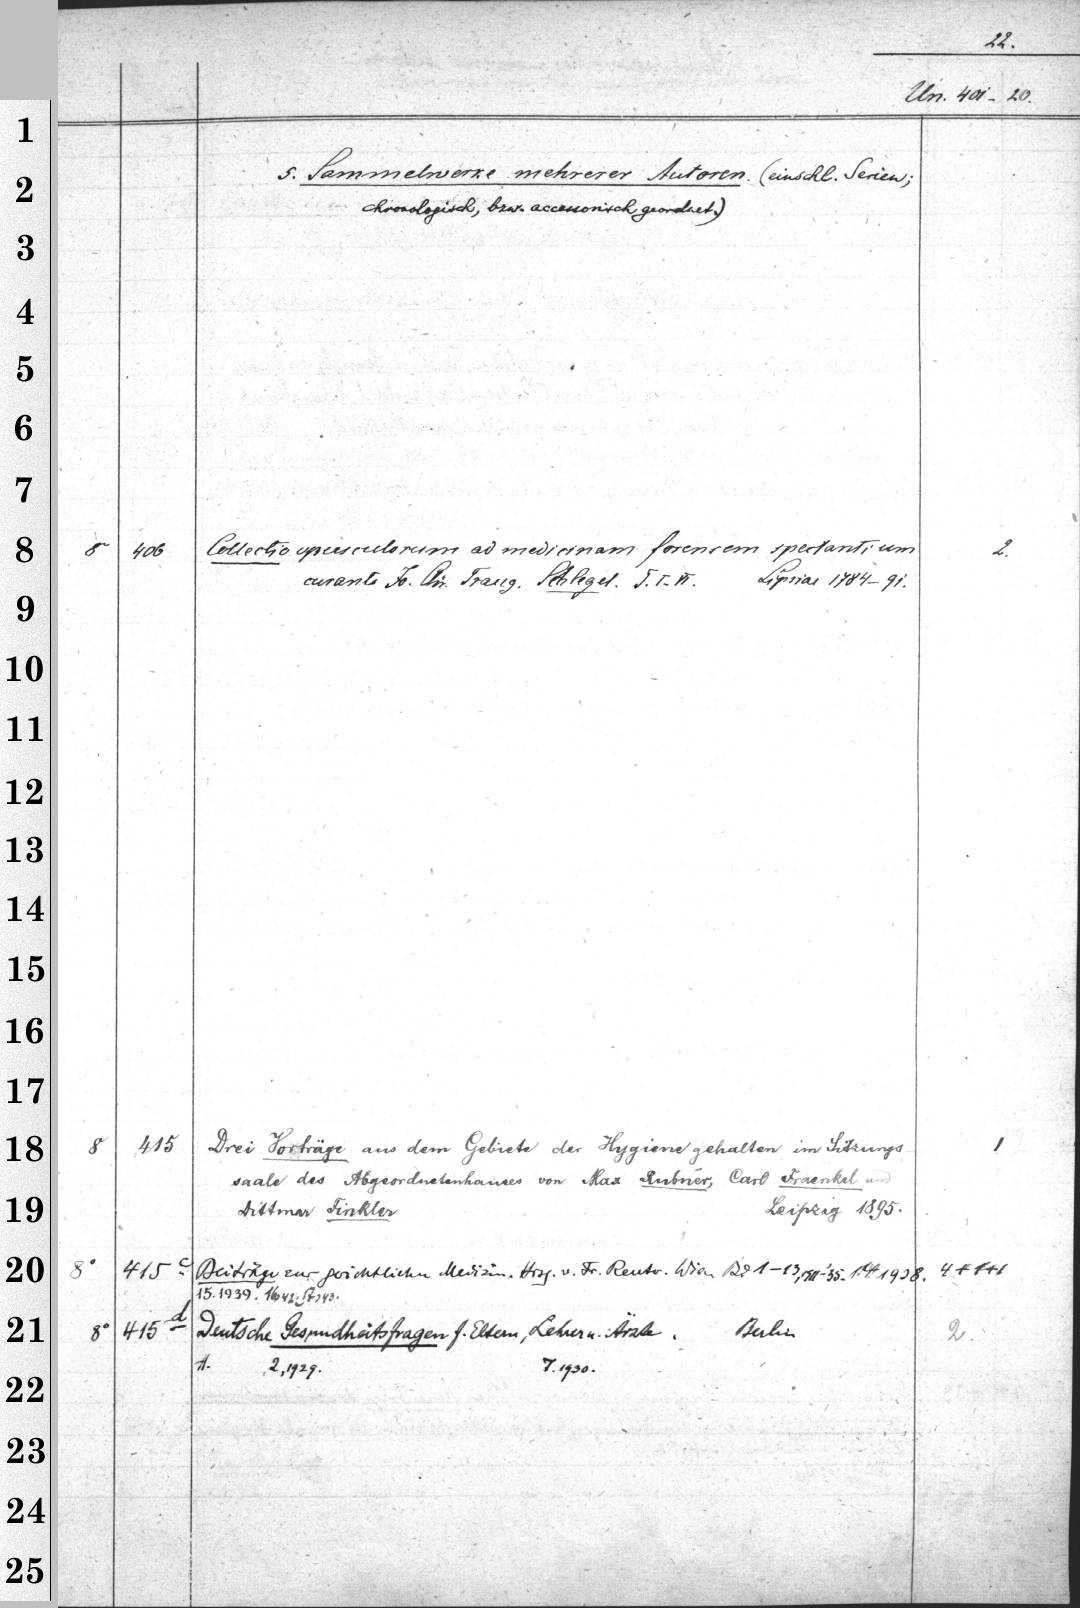 22.
Un. 401-20.
1
5. Sammelwerke mehrerer Autoren. (einschl. Serien;
2
chronologisch, bzw. accessorisch geordnet.)
3
4
5
6
7
8
8° 406 Collectio opusculorum ad medicinam forensem spectantium 2.
curante Jo. Chr. Traug. Schlegel. T. I-VI. Lipsiae 1784-91.
9
10
11
12
13
14
15
16
17
18
8 415 Drei Vorträge aus dem Gebiete der Hygiene gehalten im Sitzungs- 1
saale des Abgeordnetenhauses von Max Rubner, Carl Fraenkel und
19
Dittmar Finkler Leipzig 1895.
20
8° 415 c Beiträge zur gerichtlichen Medizin. Hrsg. v. Fr. Reuter. Wien Bd 1-13, 1938. 4+1+1
15.1939. 16
21
8° 415 d Deutsche Gesundheitsfragen f. Eltern, Lehrer u. Ärzte. Berlin 2.
H. 2, 1929. 7. 1930.
22
23
24
25